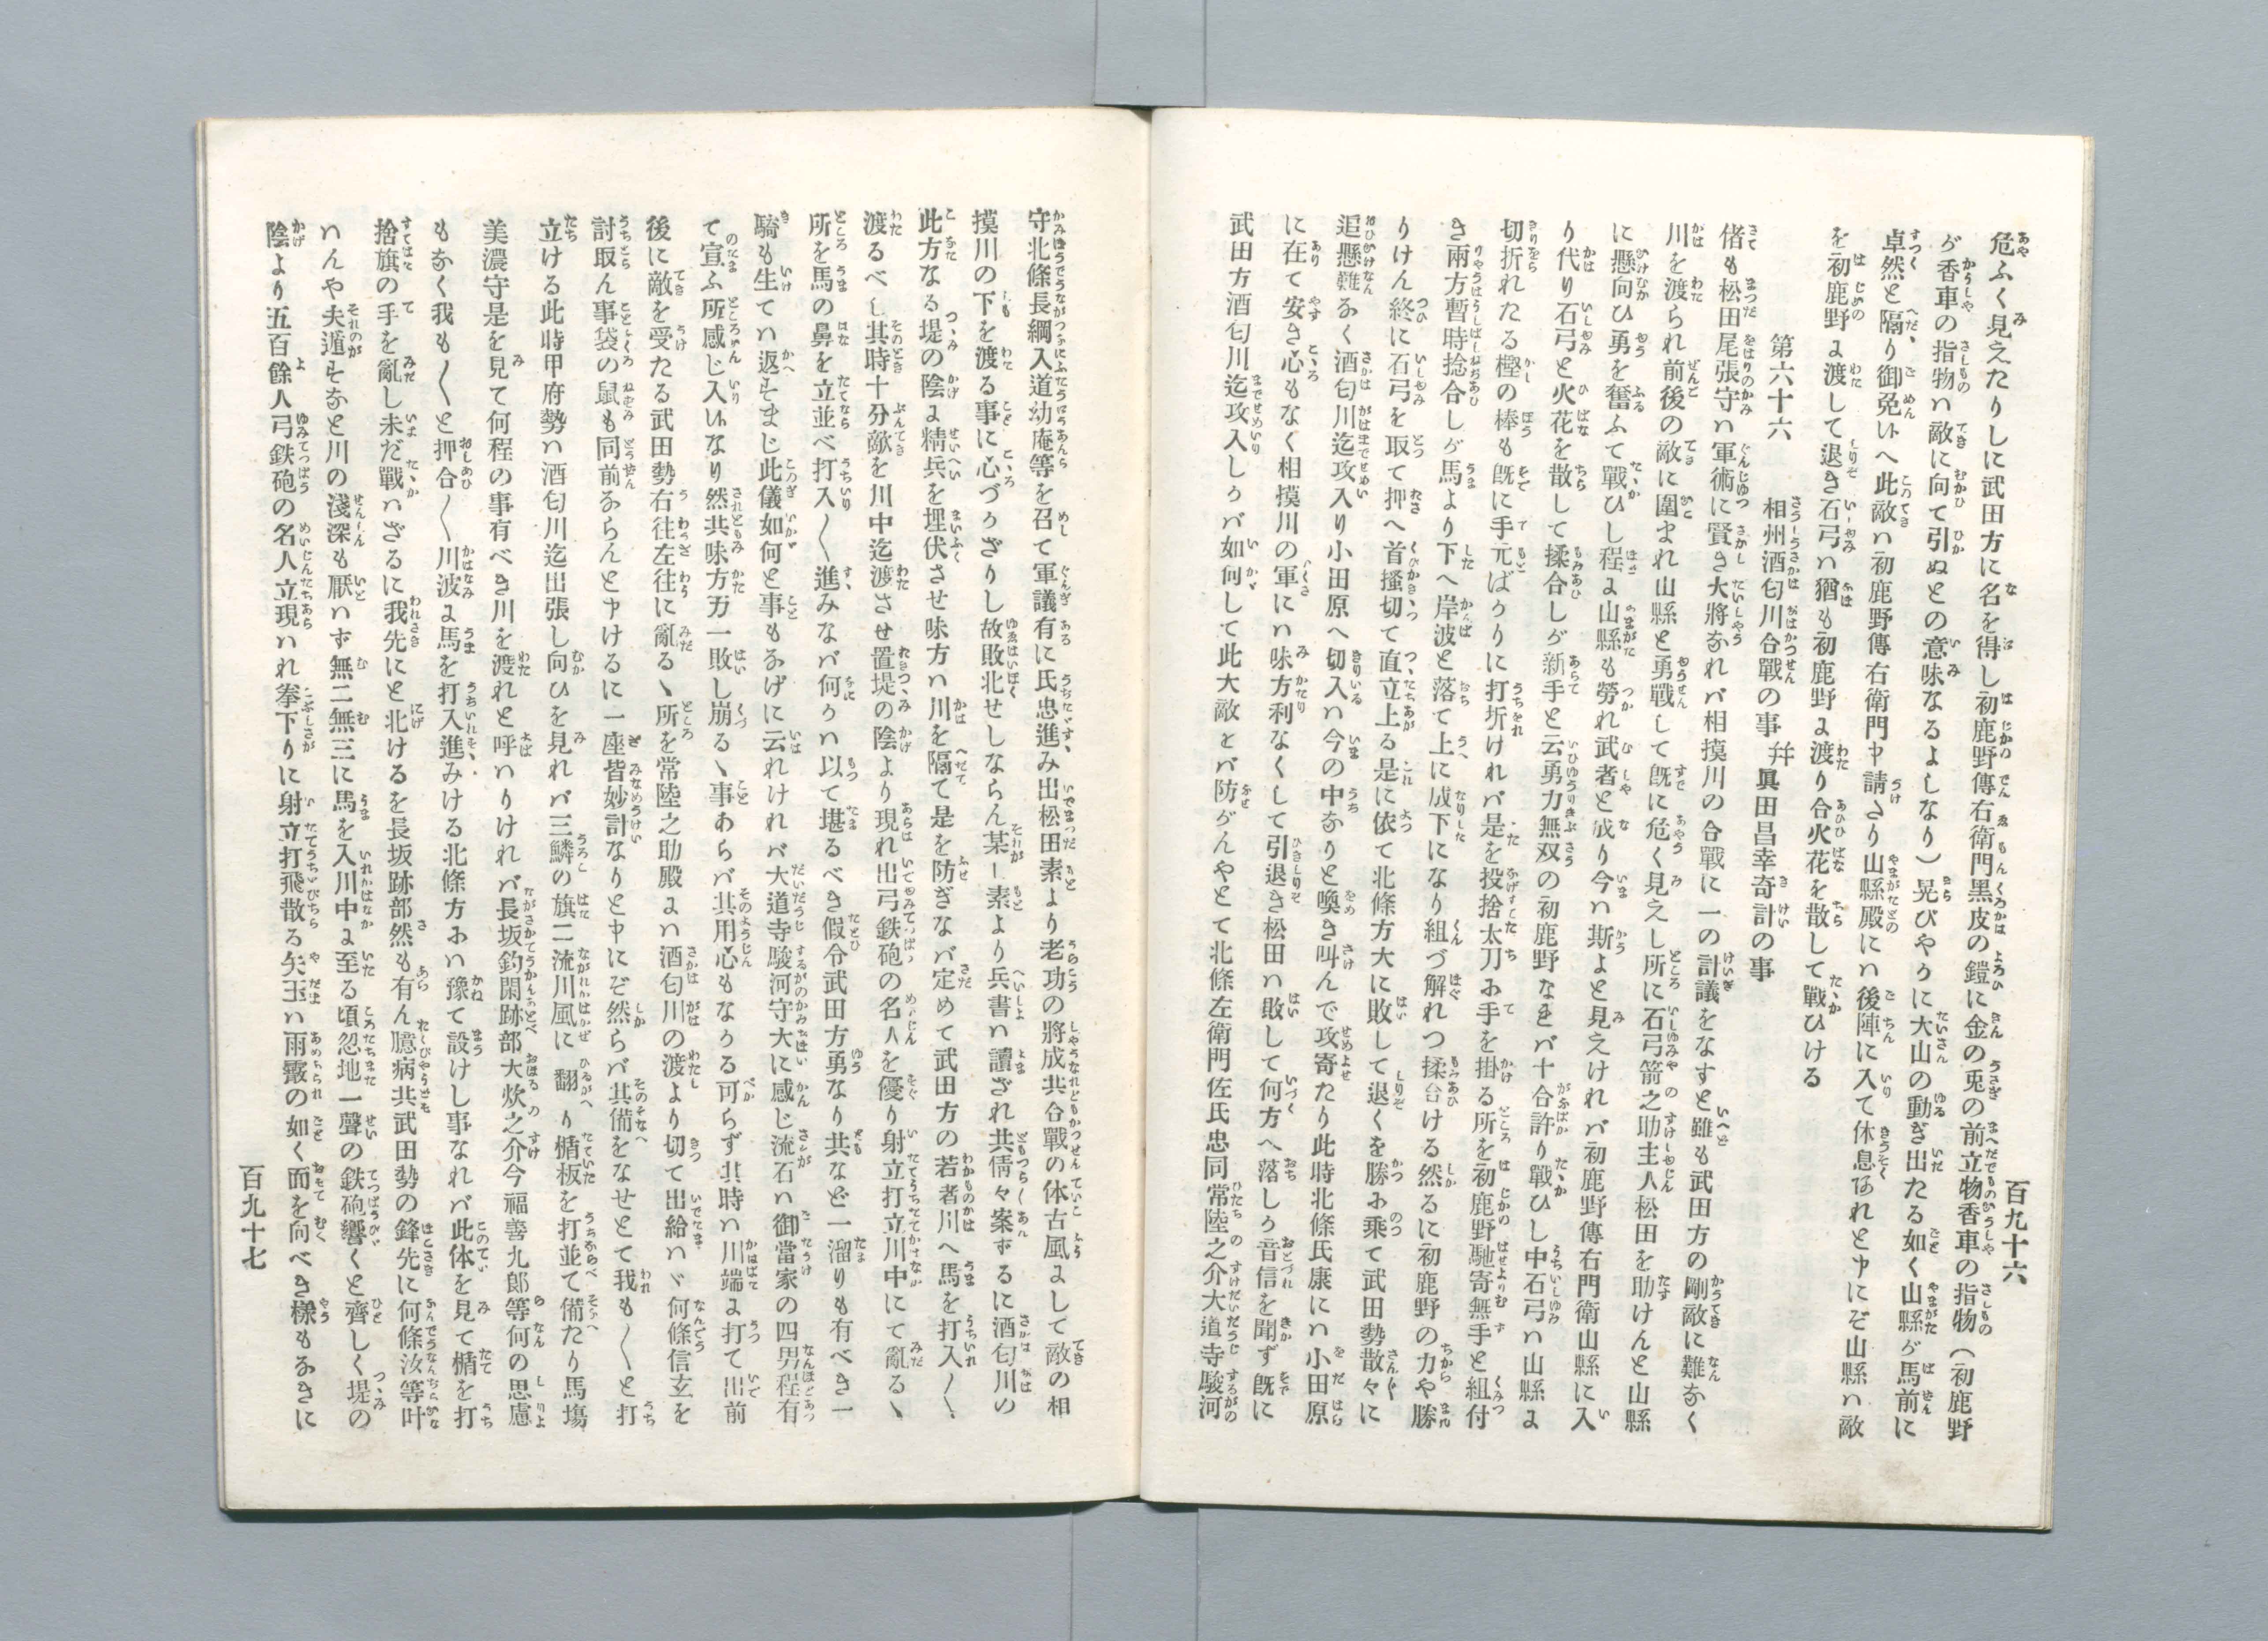 百九十六
危ふく見えたりしに武田方に名を得し初鹿野傳右衛門黒皮の鎧に金の兎の前立物香車の指物（初鹿野
が香車の指物ハ敵に向て引ぬとの意味なるよしなり）晃びやかに大山の動ぎ出たる如く山縣が馬前に
卓然と隔り御免いへ此敵ハ初鹿野傳右衛門申請さり山縣殿にハ後陣に入て休息あれと申にぞ山縣ハ敵
を初鹿野に渡して退き石弓ハ猶も初鹿野に渡り合火花を散して戰ひける
第六十六　相州酒匂川合戰の事幷眞田昌幸奇計の事
偖も松田尾張守ハ軍術に賢き大將なれバ相摸川の合戰に一の計議をなすと雖も武田方の剛敵に難なく
川を渡られ前後の敵に圍まれ山縣と勇戰して既に危く見えし所に石弓箭之助主人松田を助けんと山縣
に懸向ひ勇を奮ふて戰ひし程に山縣も勞れ武者と成り今ハ斯よと見えけれバ初鹿野傳右門衛山縣に入
り代り石弓と火花を散して揉合しが新手と云勇力無双の初鹿野なれバ十合許り戰ひし中石弓ハ山縣に
切折れたる樫の棒も既に手元ばかりに打折けれバ是を投捨太刀に手を掛る所を初鹿野馳寄無手と組付
き兩方暫時捻合しが馬より下へ岸波と落て上に成下になり組づ解れつ揉合ける然るに初鹿野の力や勝
りけん終に石弓を取て押へ首搔切て直立上る是に依て北條方大に敗して退くを勝に乘て武田勢散々に
追懸難なく酒匂川迄攻入り小田原へ切入ハ今の中なりと喚き叫んで攻寄たり此時北條氏康にハ小田原
に在て安き心もなく相摸川の軍にハ味方利なくして引退き松田ハ敗して何方へ落しか音信を聞ず既に
武田方酒匂川迄攻入しかバ如何して此大敵とバ防がんやとて北條左衛門佐氏忠同常陸之介大道寺駿河
守北條長綱入道幼庵等を召て軍議有に氏忠進み出松田素より老功の將成共合戰の体古風にして敵の相
摸川の下を渡る事に心づかざりし故敗北せしならん某し素より兵書ハ讀ざれ共倩々案ずるに酒匂川の
此方なる堤の陰に精兵を埋伏させ味方ハ川を隔て是を防ぎなバ定めて武田方の若者川へ馬を打入〱
渡るべし其時十分敵を川中迄渡させ置堤の陰より現れ出弓鉄砲の名人を優り射立打立川中にて亂るヽ
所を馬の鼻を立並べ打入〱進みなバ何かハ以て堪るべき假令武田方勇なり共など一溜りも有べき一
騎も生てハ返すまじ此儀如何と事もなげに云れけれバ大道寺駿河守大に感じ流石ハ御當家の四男程有
て宣ふ所感じ入いなり然共味方万一敗し崩るヽ事あらバ其用心もなかる可らず其時ハ川端に打て出前
後に敵を受たる武田勢右往左往に亂るヽ所を常陸之助殿にハ酒匂川の渡より切て出給ハヾ何條信玄を
討取ん事袋の鼠も同前ならんと申けるに一座皆妙計なりと申にぞ然らバ其備をなせとて我も〱と打
立ける此時甲府勢ハ酒匂川迄出張し向ひを見れバ三鱗の旗二流川風に翻り楯板を打並て備たり馬塲
美濃守是を見て何程の事有べき川を渡れと呼ハりけれバ長坂釣閑跡部大炊之介今福善九郎等何の思慮
もなく我も〱と押合〱川波に馬を打入進みける北條方にハ豫て設けし事なれバ此体を見て楯を打
捨旗の手を亂し未だ戰ハざるに我先にと北けるを長坂跡部然も有ん臆病共武田勢の鋒先に何條汝等叶
ハんや夫遁すなと川の淺深も厭ハず無二無三に馬を入川中に至る頃忽地一聲の鉄砲響くと齊しく堤の
陰より五百餘人弓鉄砲の名人立現ハれ拳下りに射立打飛散る矢玉ハ雨霰の如く面を向べき樣もなきに
百九十七